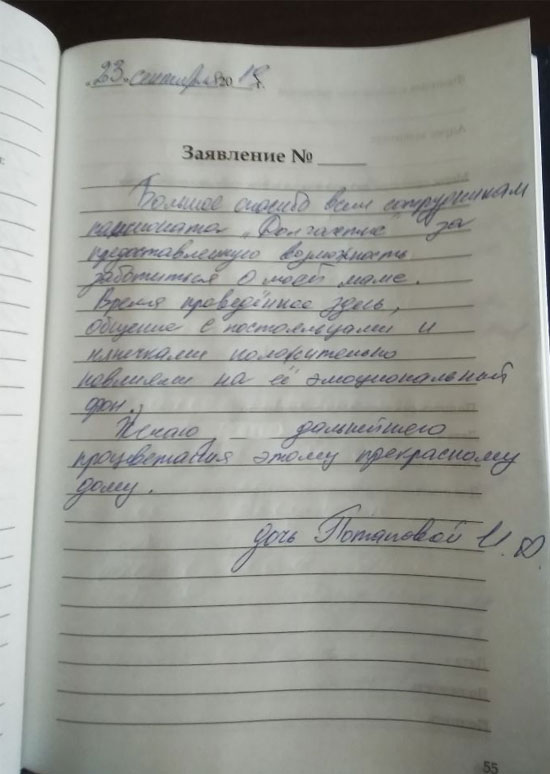 „23" сентября 2018 г.
Заявление № ____
Большое спасибо всем сотрудникам
пансионата „Долголетие" за
предоставленную возможность
заботиться о моей маме.
Время проведённое здесь,
общение с постояльцами и
нянечками положительно
повлияли на её эмоциональный
фон.
Желаю дальнейшего
процветания этому прекрасному
дому.
дочь Потаповой И. Ю.
55